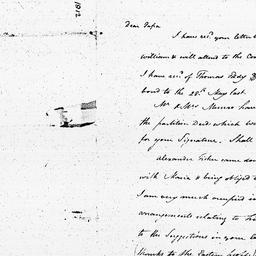 1812
Dear Papa
I have recd. your letter
William & will attend to the Con
I have recd. of Thomas Eddy
bond to the 28th. May last.
Mr. & Mrs. Munro have
the partition Deed which w
for your Signature. Shall
Alexander Fisher came do
with Maria & being obliged t
I am very much occupied i
arrangements relating to the
to the Suggestions in your le
thanks to the Eastern